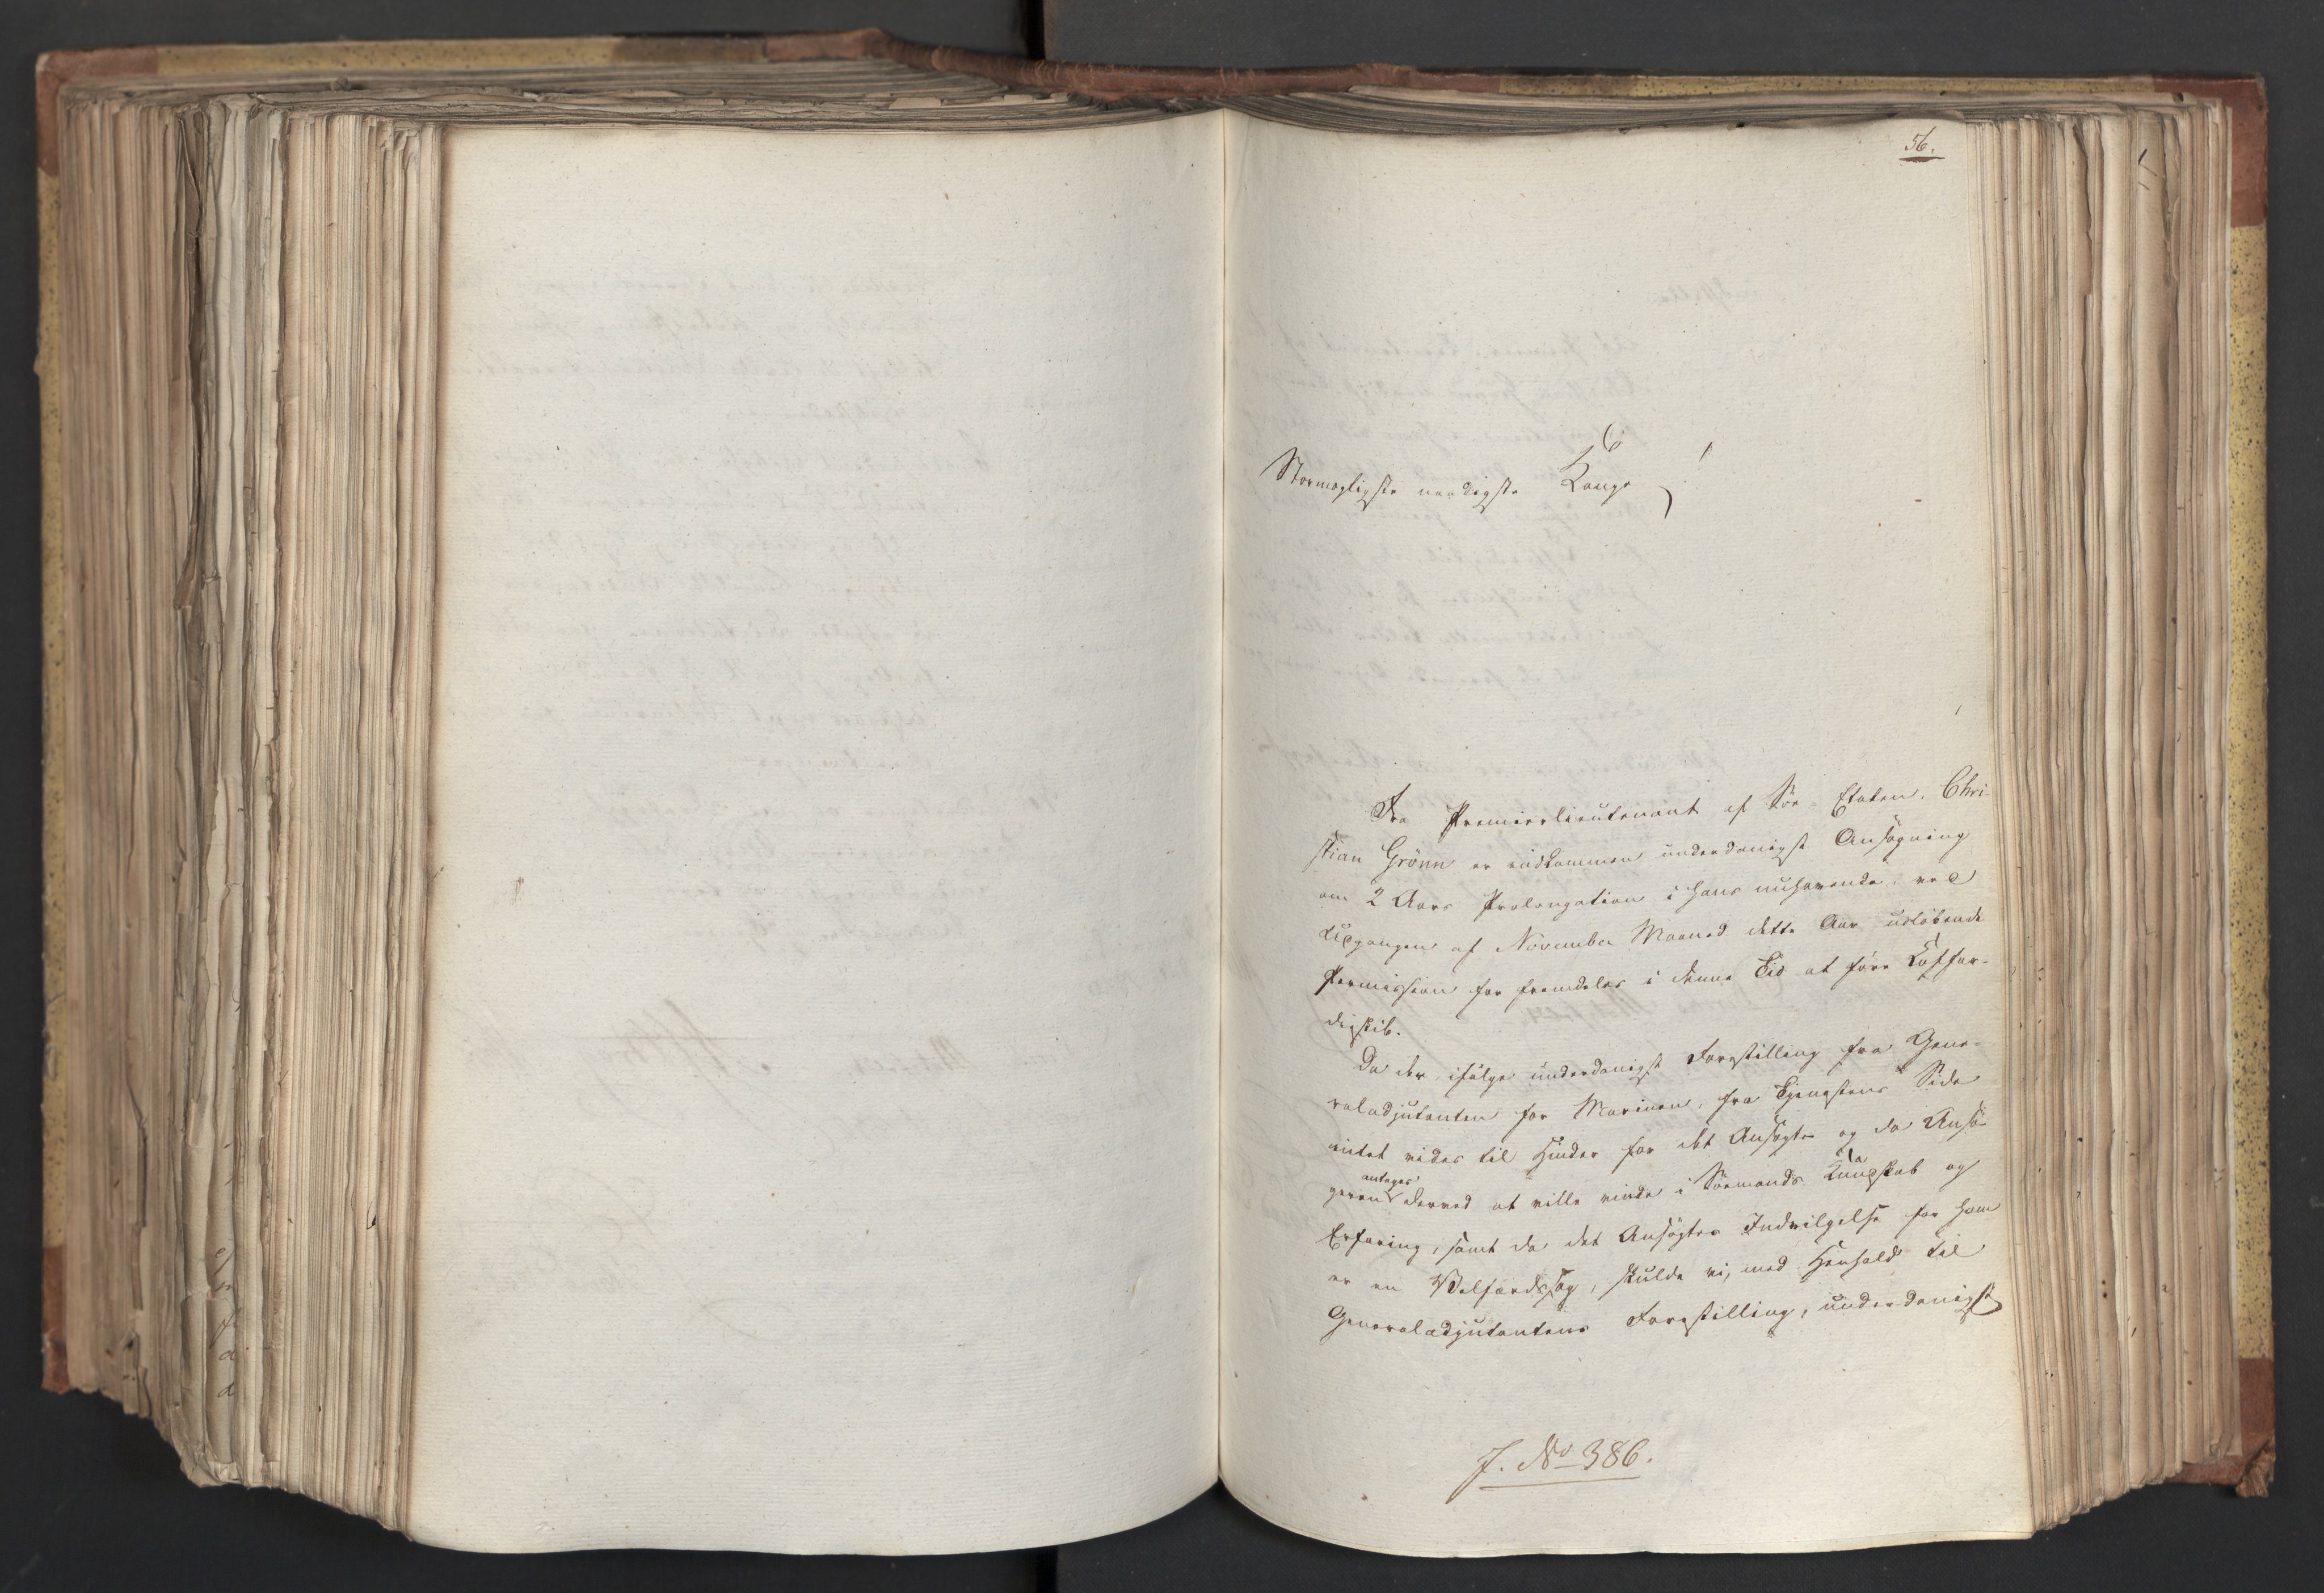 56.
Stormægtigste naadigste Konge!
Fra Premierlieutenant af Söe-Etaten, Chri-
stian Grönn er indkommen underdanigst Ansögning
om 2 Aars Prolongation i hans nuhavende, ved
Udgangen af November Maaned dette Aar udlöbende
Permission for fremdeles i denne Tid at före Koffar-
dieskib.
Da der, ifölge underdanigst Forestilling fra Gene-
raladjutanten for Marinen, fra Tjenestens Side
intet vides til Hinder for det Ansögte og da Ansö-
geren antages derved at ville vinde i Sömands Kundskab og
Erfaring, samt da det Ansögtes Indvilgelse for ham
er en Velfærdssag, skulde vi, med Henhold til
Generaladjutantens Forestilling, underdanigst
J. No 386.